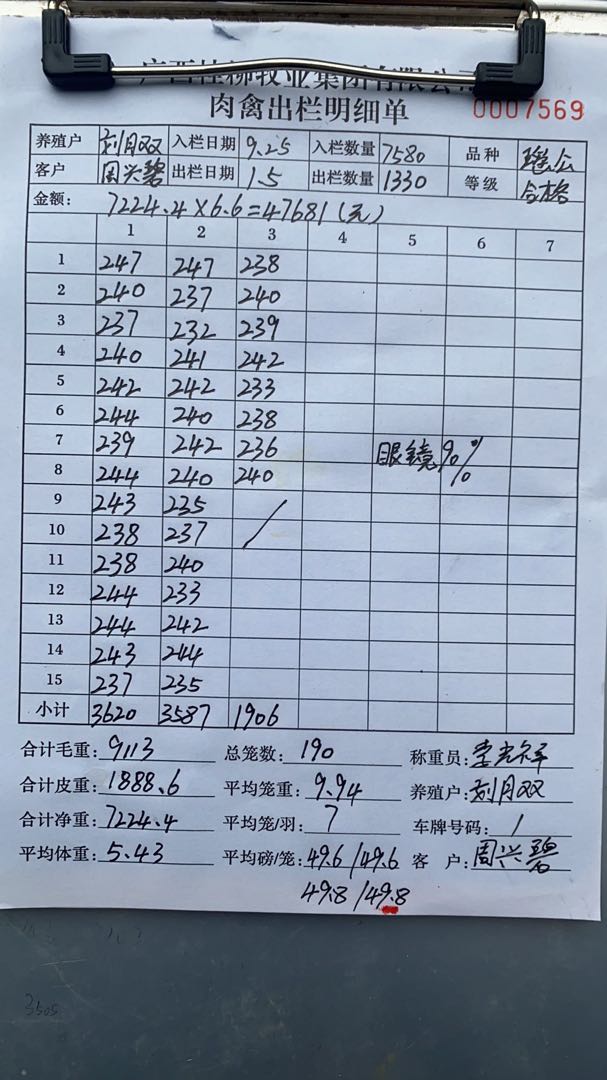 广西桂柳牧业集团有限公
肉禽出栏明细单 0007569
养殖户 刘月双 入栏日期 9.25 入栏数量 7580 品种
客户 周兴碧 出栏日期 1.5 出栏数量 1330 等级 合格
金额: 7224.4×6.6=47681(元)
1 2 3 4 5 6 7
1 247 247 238
2 240 237 240
3 237 232 239
4 240 241 242
5 242 242 233
6 244 240 238
7 239 242 236 眼镜90%
8 244 240 240
9 243 235
10 238 237
11 238 240
12 244 233
13 244 242
14 243 244
15 237 235
小计 3620 3587 1906
合计毛重: 9113 总笼数: 190 称重员:
合计皮重: 1888.6 平均笼重: 9.94 养殖户: 刘月双
合计净重: 7224.4 平均笼/羽: 7 车牌号码: /
平均体重: 5.43 平均磅/笼: 49.6/49.6 客户: 周兴碧
49.8/49.8
3505